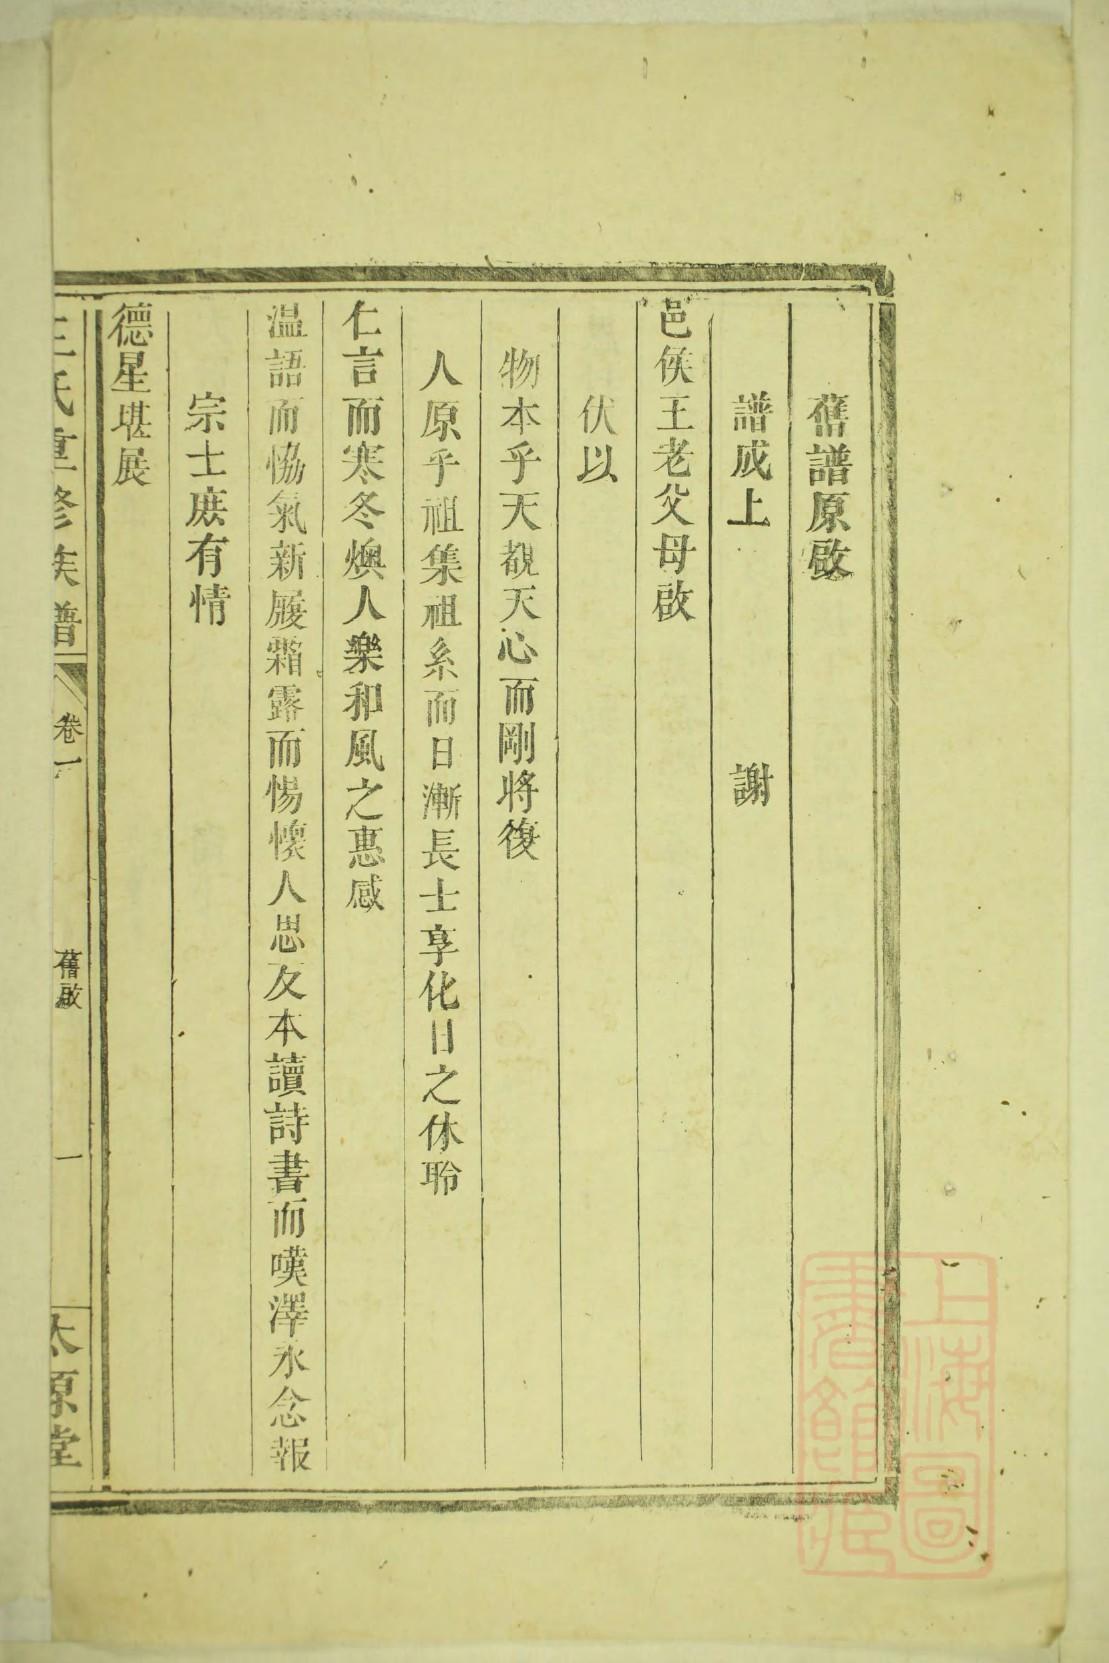 舊譜原啟
譜成上　謝
邑侯王老父母啟
伏以
物本乎天覩天心而剛將復
人原乎祖集祖系而日漸長士享化日之休聆
仁言而寒冬燠人樂和風之惠感
温語而恊氣新履霜露而惕懷人思反本讀詩書而嘆澤永念報
宗士庶有情
德星堪展
王氏重修族譜
卷一
舊啟
一
太原堂
上海圖書館藏